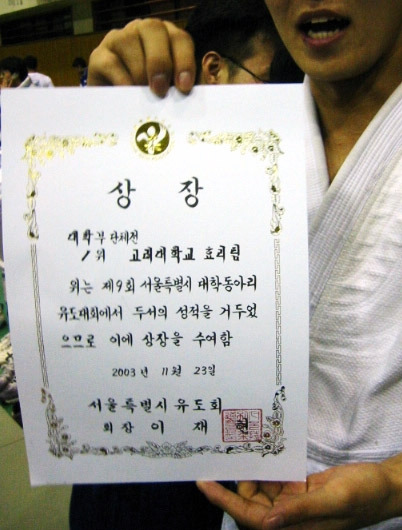 상 장
대학부 단체전
1위 고려대학교 호리팀
위는 제9회 서울특별시 대학동아리
유도대회에서 두서의 성적을 거두었
으므로 이에 상장을 수여함
2003년 11월 23일
서울특별시 유도회
회장 이 재